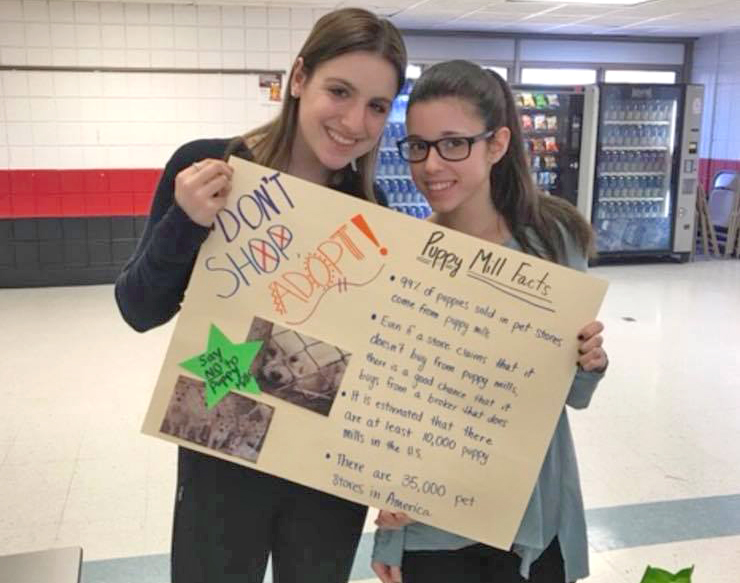 DON'T
SHOP
ADOPT!
Say
NO to
Puppy
Mills
Puppy Mill Facts
• 99% of puppies sold in pet stores
come from puppy mills
• Even if a store claims that it
doesn't buy from puppy mills,
there is a good chance that it
buys from a broker that does
• It is estimated that there
are at least 10,000 puppy
mills in the U.S.
• There are 35,000 pet
stores in America